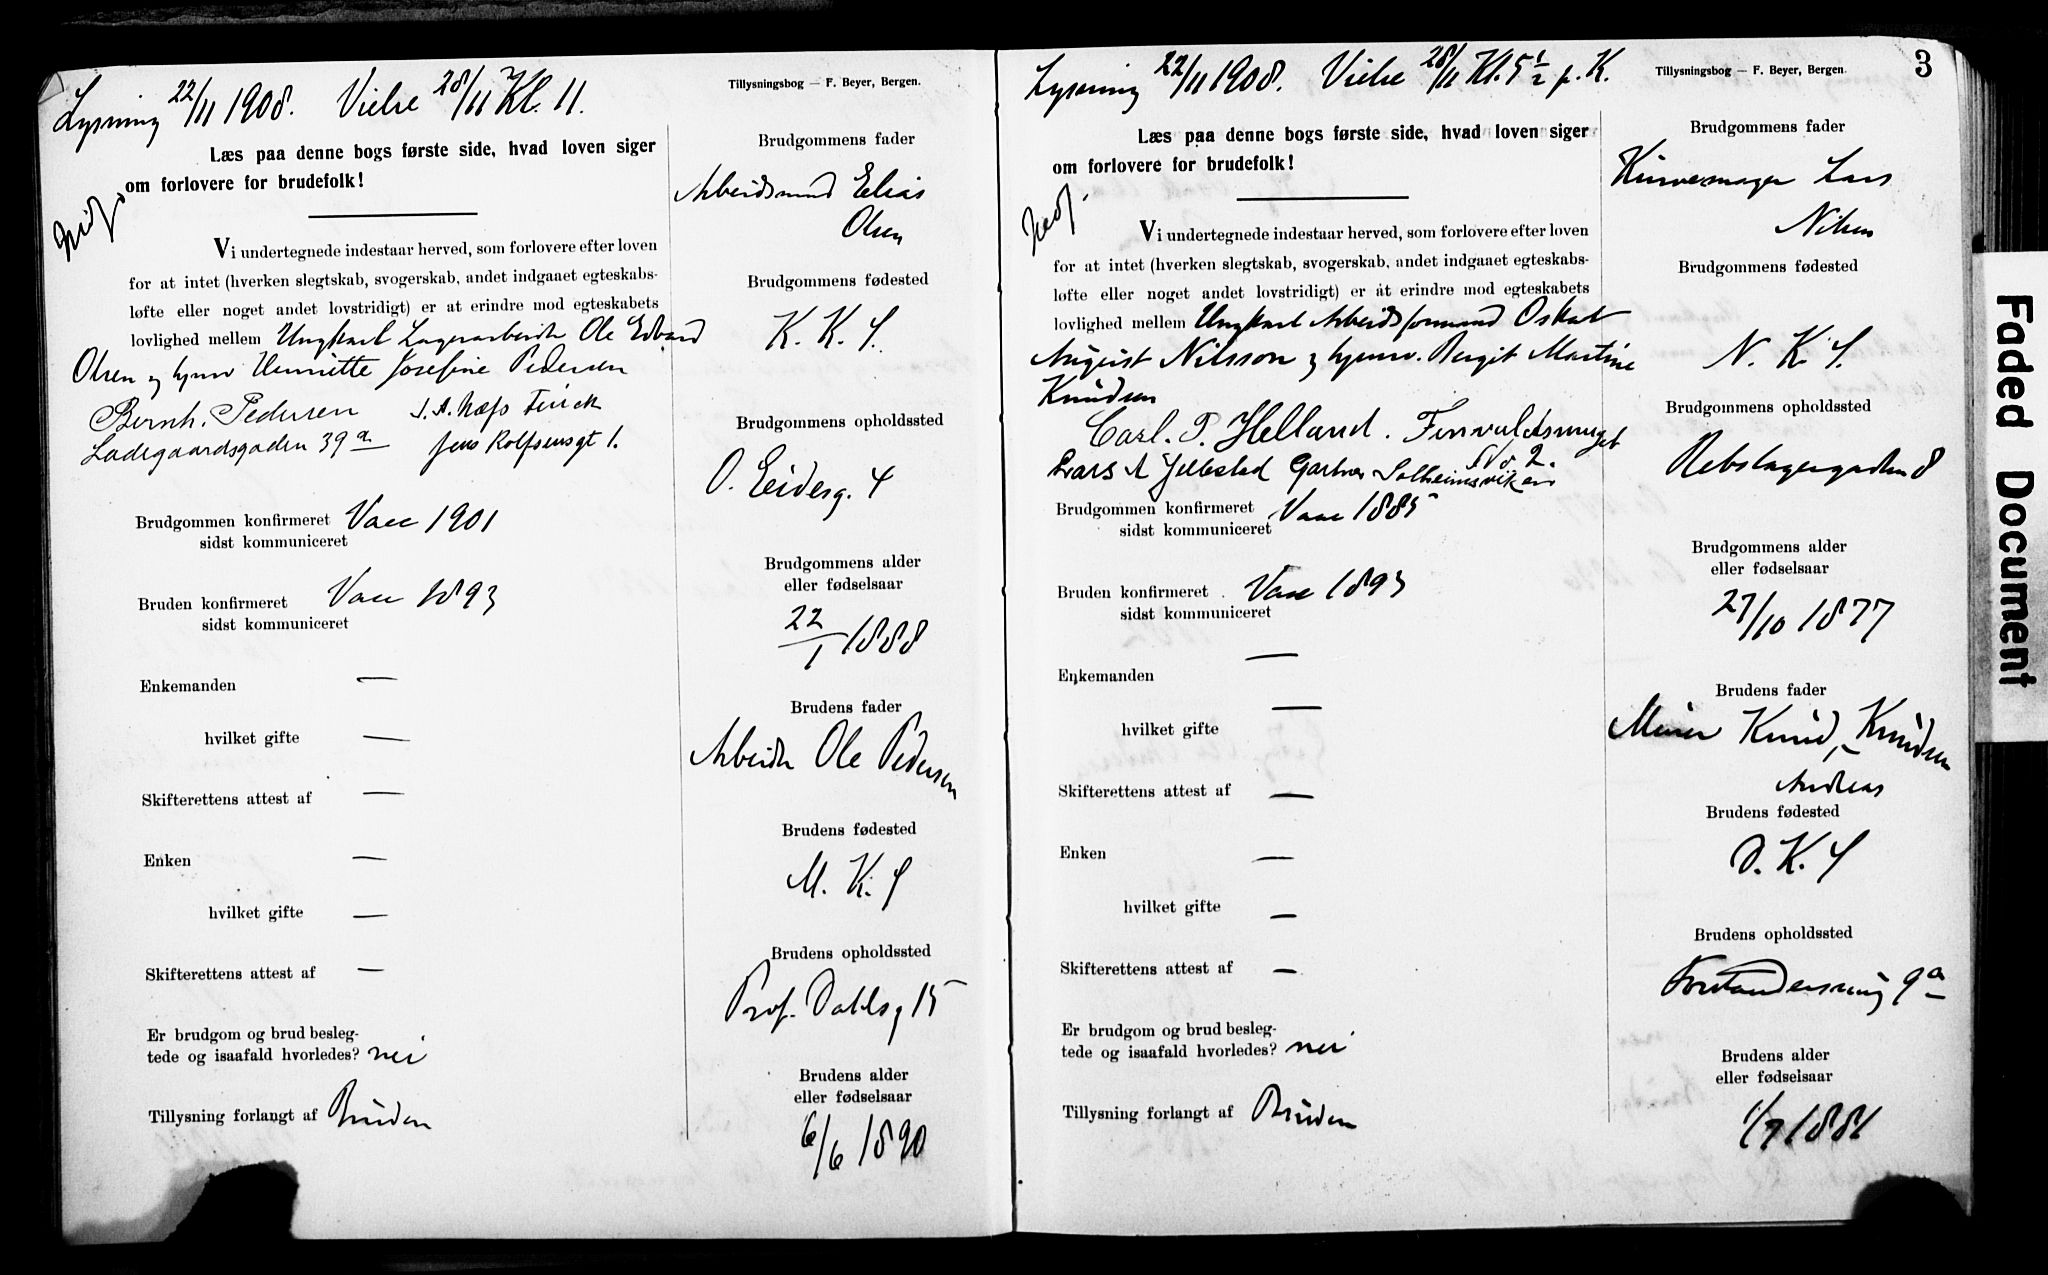 Lysning 22/11 1908. Vielse 28/11 Kl. 11.
Tillysningsbog — F. Beyer, Bergen.
Læs paa denne bogs første side, hvad loven siger
om forlovere for brudefolk!
Vi undertegnede indestaar herved, som forlovere efter loven
for at intet (hverken slegtskab, svogerskab, andet indgaaet egteskabs-
løfte eller noget andet lovstridigt) er at erindre mod egteskabets
lovlighed mellem Ungkarl Lagerarbeider Ole Edvard
Olsen og Henriette Josefine Pedersen
Bernh. Pedersen
Ladegaardsgaden 39a Jens Rolfsensgt 1.
Brudgommen konfirmeret Vacc 1901
sidst kommuniceret
Bruden konfirmeret Vacc 1893
sidst kommuniceret
Enkemanden —
hvilket gifte —
Skifterettens attest af —
Enken —
hvilket gifte —
Skifterettens attest af —
Er brudgom og brud besleg-
tede og isaafald hvorledes? nei
Tillysning forlangt af Bruden
Brudgommens fader
Arbeidsmand Elias
Olsen
Brudgommens fødested
K. K. S.
Brudgommens opholdssted
O. Eidesg. 4
Brudgommens alder
eller fødselsaar
22/1 1888
Brudens fader
Arbeider Ole Pedersen
Brudens fødested
M. K. S
Brudens opholdssted
Prof. Dahlsg 15
Brudens alder
eller fødselsaar
6/6 1890
Lysning 22/11 1908. Vielse 28/11 Kl. 5 1/2 p. K.
Tillysningsbog — F. Beyer, Bergen.
3
Læs paa denne bogs første side, hvad loven siger
om forlovere for brudefolk!
Vi undertegnede indestaar herved, som forlovere efter loven
for at intet (hverken slegtskab, svogerskab, andet indgaaet egteskabs-
løfte eller noget andet lovstridigt) er at erindre mod egteskabets
lovlighed mellem Ungkarl Arbeidsformand Oskar
August Nilsson og Bergit Martine
Knudsen
Carl. P. Helland.
Lars Gartner Solheimsviken
No 2.
Brudgommen konfirmeret Vacc 1885
sidst kommuniceret
Bruden konfirmeret Vacc 1893
sidst kommuniceret
Enkemanden —
hvilket gifte —
Skifterettens attest af —
Enken —
hvilket gifte —
Skifterettens attest af —
Er brudgom og brud besleg-
tede og isaafald hvorledes? nei
Tillysning forlangt af Bruden
Brudgommens fader
Kurvemager Lars
Nilsen
Brudgommens fødested
N. K. S.
Brudgommens opholdssted
Rebslagergaden 8
Brudgommens alder
eller fødselsaar
27/10 1877
Brudens fader
Murer Knud Knudsen
Andreas
Brudens fødested
D. K. S
Brudens opholdssted
9a
Brudens alder
eller fødselsaar
1/7 1881
Faded Document